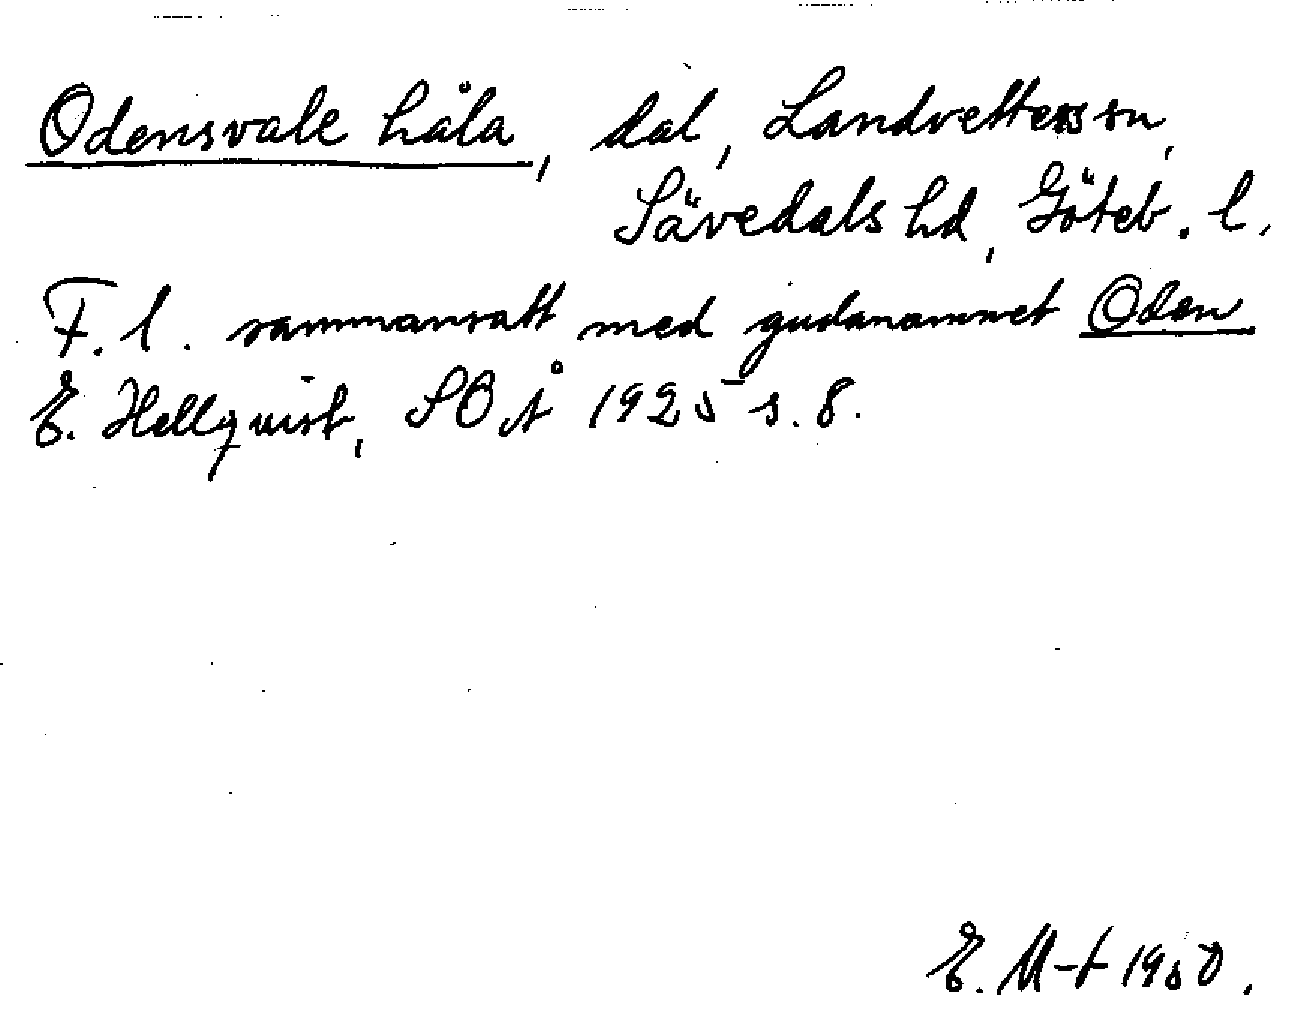 Odensvale håla, dal, Landvetters sn,
Sävedals hd, Göteb. l.
F. l. sammansatt med gudanamnet Oden
E. Hellquist, SOÅ 1925 s. 8.
E. M-t 1950.